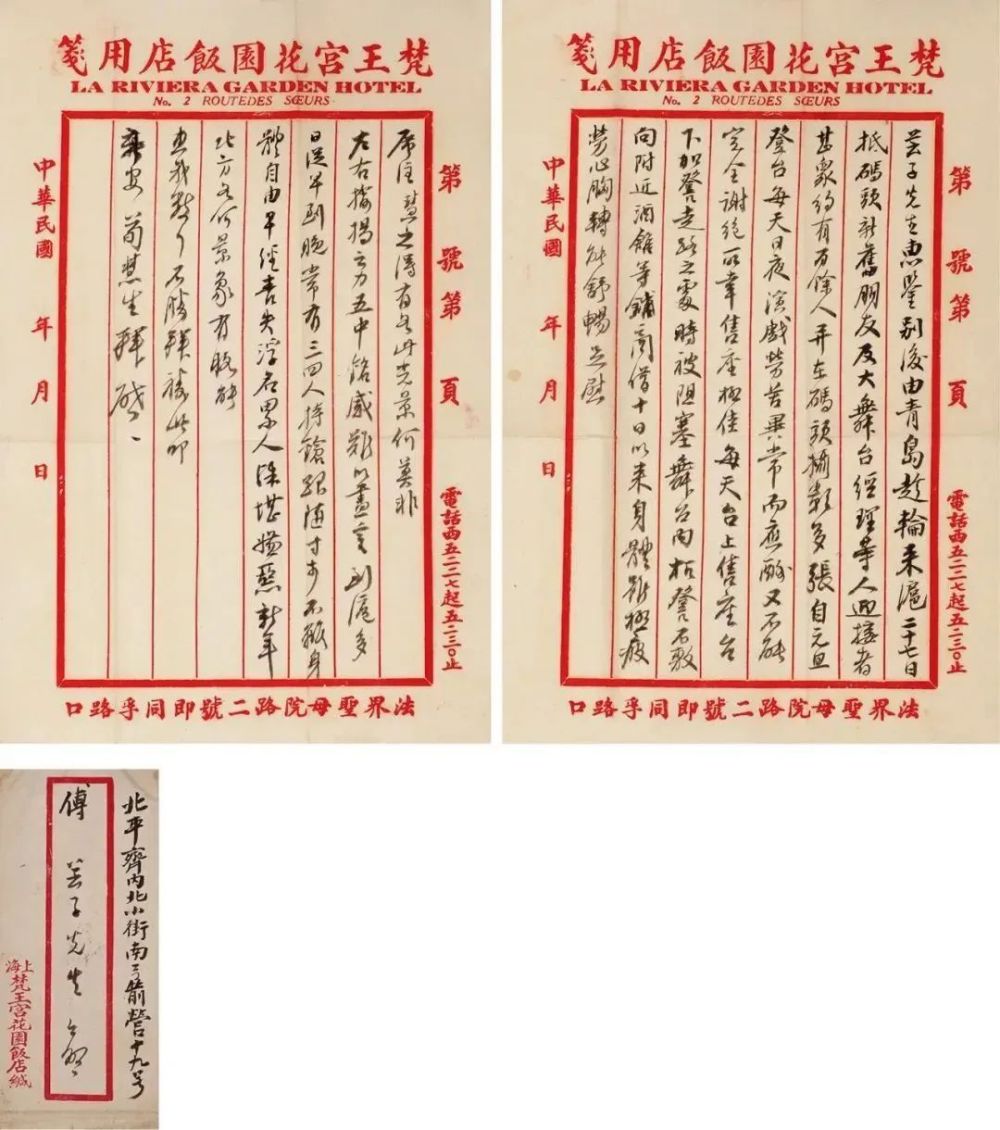 梵王宮花園飯店用箋
LA RIVIERA GARDEN HOTEL
No. 2 ROUTEDES SŒURS
第 號第 頁
電話西五二二七起五二三〇止
芸子先生惠鑒別後由青島趁輪來滬二十七日
抵碼頭新舊朋友及大舞台經理等人迎接者
甚衆約有百餘人并在碼頭攝影多張自元旦
登台每天日夜演戲勞苦異常而應酬又不能
完全謝絕所幸售座極佳每天台上售座台
下加凳走路之處時被阻塞舞台内板凳不敷
向附近酒館等鋪商借十日以來身體雖極疲
勞心胸轉能舒暢足慰
中華民國 年 月 日
法界聖母院路二號即同孚路口
梵王宮花園飯店用箋
LA RIVIERA GARDEN HOTEL
No. 2 ROUTEDES SŒURS
第 號第 頁
電話西五二二七起五二三〇止
廑注慧之得有今此光景何莫非
左右揄揚之力五中銘感難以盡言到滬多
日從早到晚常有三四人持鎗跟隨寸步不離身
體自由早經喪失浮名累人深堪嫌惡新年
北方有何景象有暇能
惠我數行不勝拜禱此叩
安 荀慧生拜啟
中華民國 年 月 日
法界聖母院路二號即同孚路口
北平齊内北小街南弓箭營十九号
傅芸子先生 台啟
上海梵王宮花園飯店緘